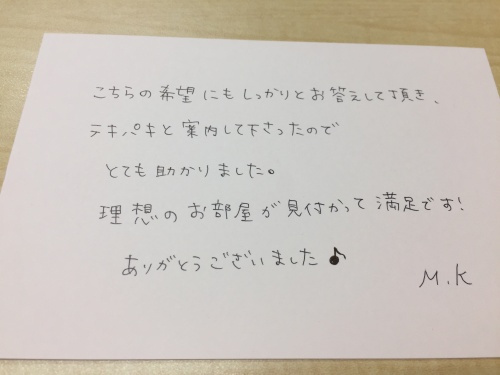 こちらの希望にもしっかりとお答えして頂き、
テキパキと案内して下さったので
とても助かりました。
理想のお部屋が見付かって満足です!
ありがとうございました♪
M.K